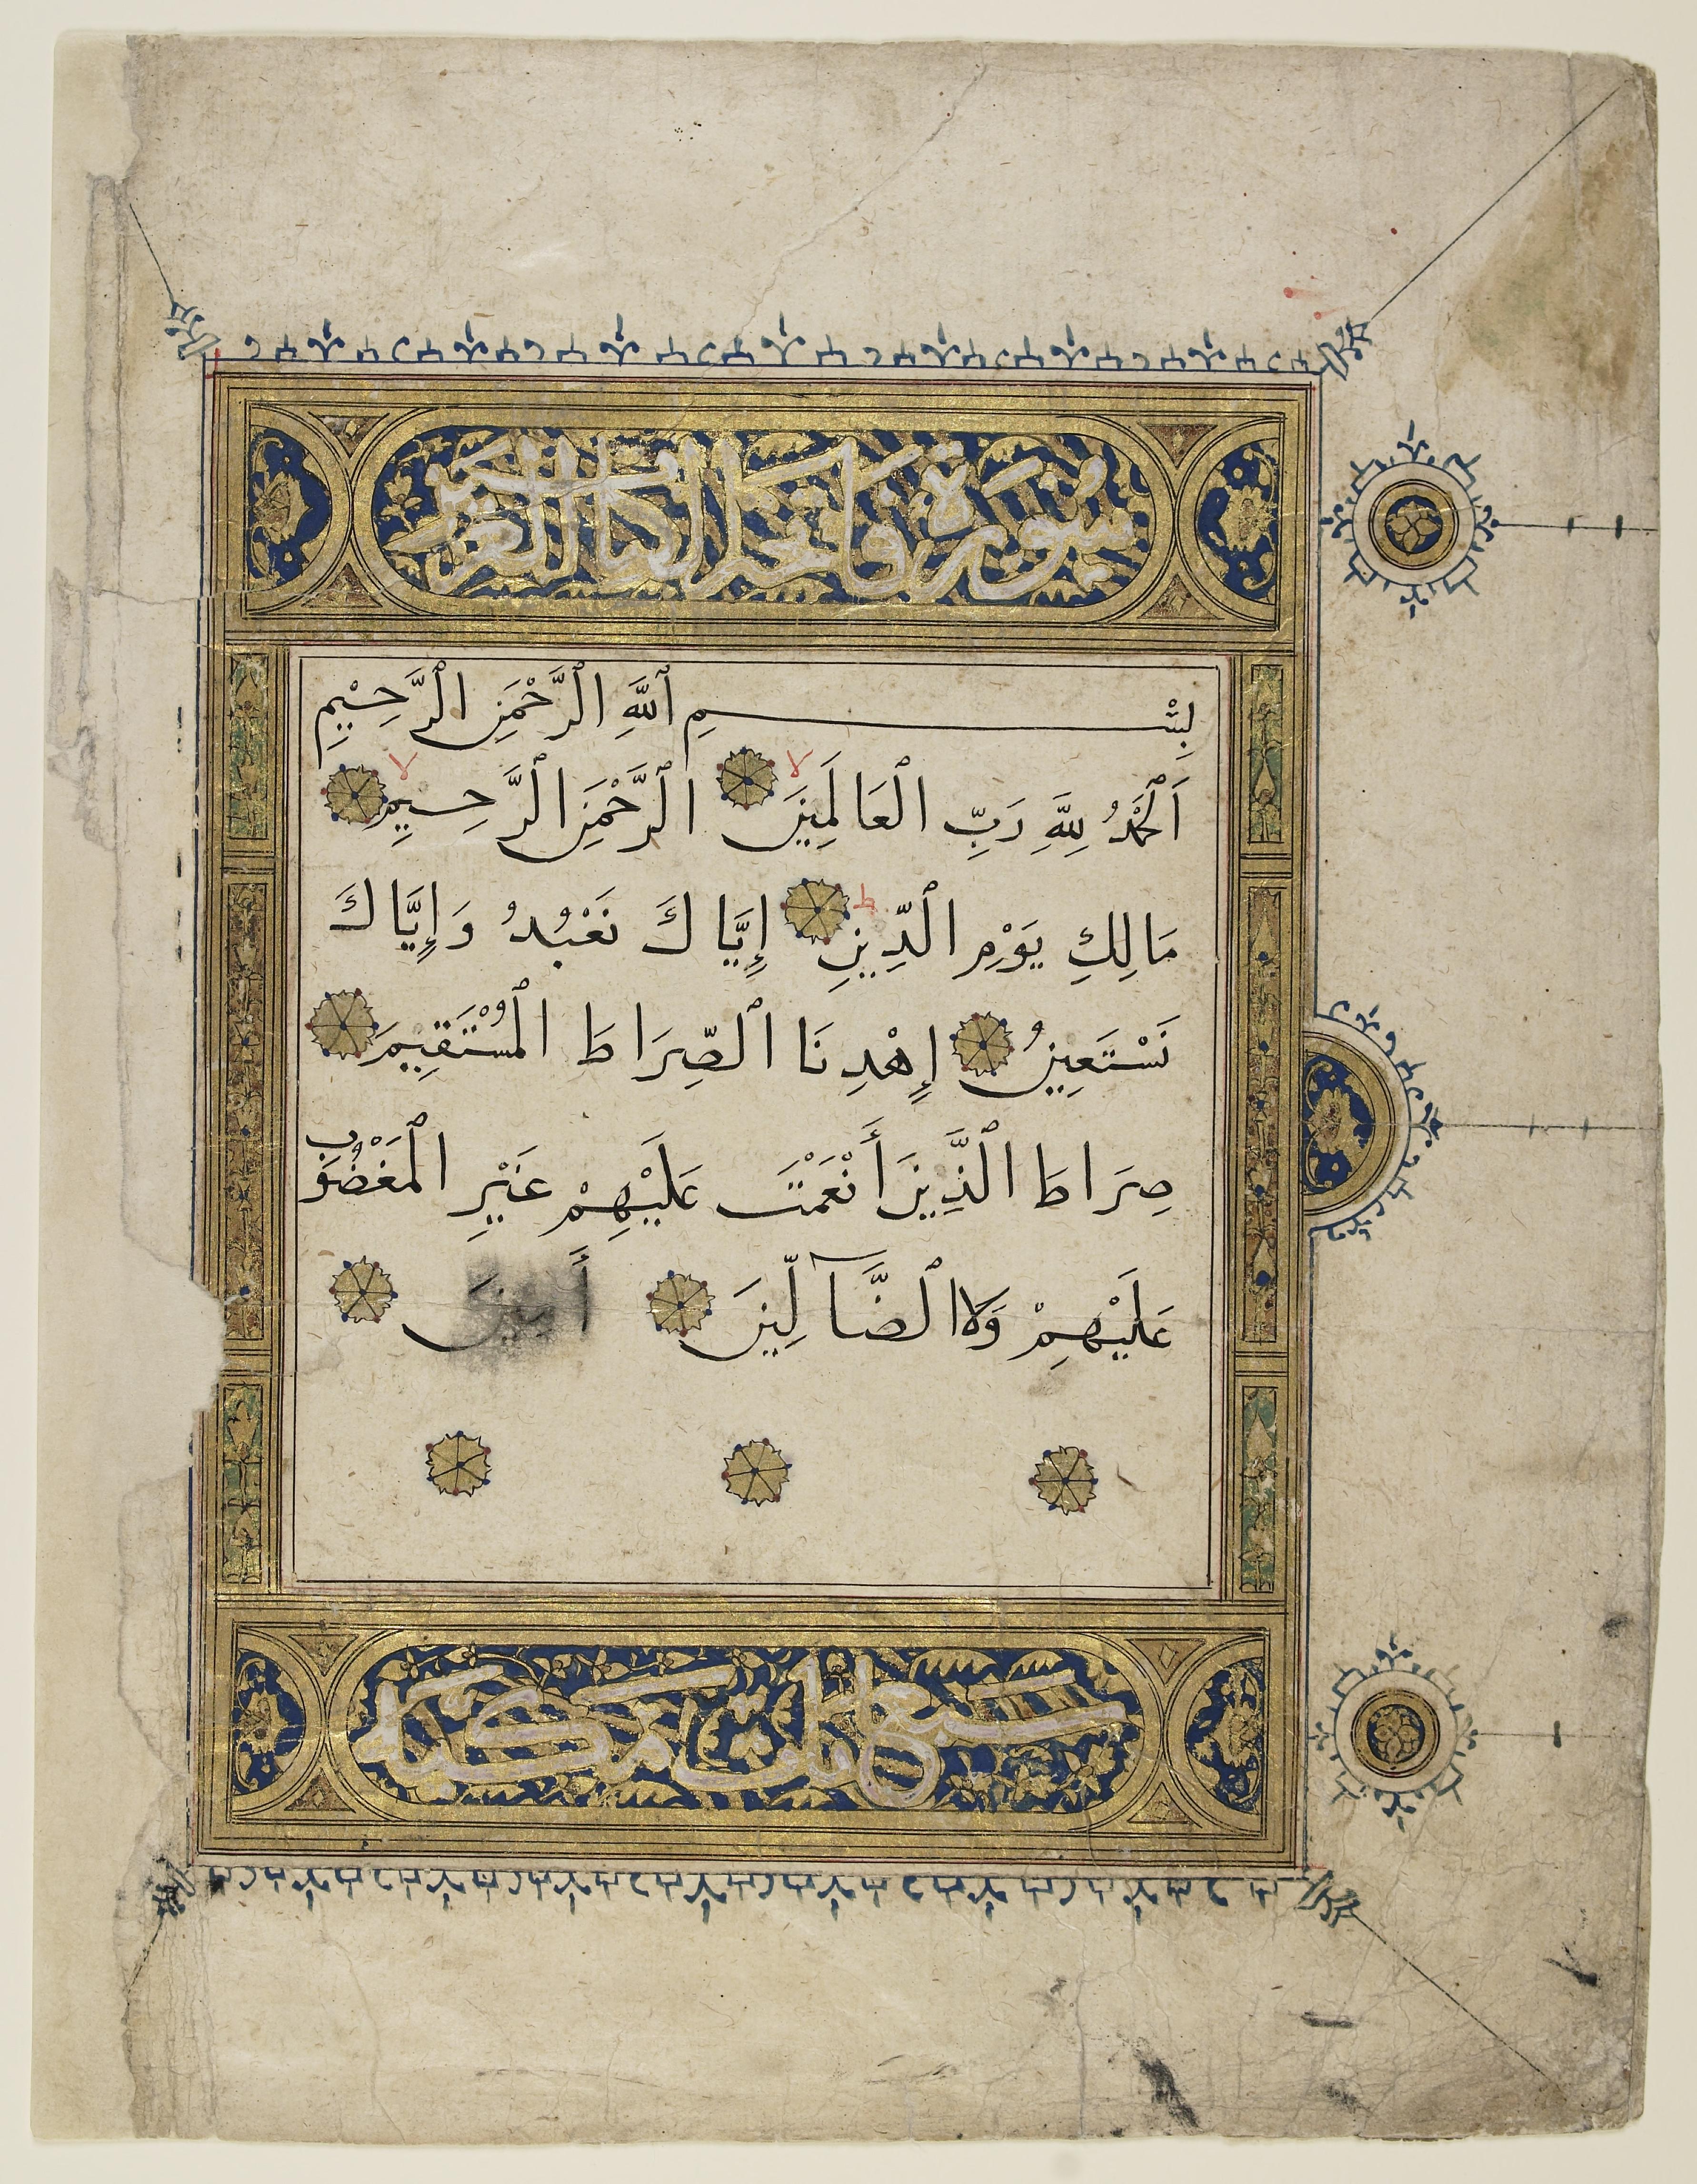 سورة فاتحة الكتاب العزيز
بِسْمِ ٱللَّهِ ٱلرَّحْمَنِ ٱلرَّحِيْمِ
اَلْحَمْدُ لِلَّهِ رَبِّ ٱلْعَالَمِينَ لا ٱلرَّحْمَنِ ٱلرَّحِيمِ لا
مَالِكِ يَوْمِ ٱلدِّينِ ط إِيَّاكَ نَعْبُدُ وَإِيَّاكَ
نَسْتَعِينُ إِهْدِنَا ٱلصِّرَاطَ ٱلْمُسْتَقِيمَ
صِرَاطَ ٱلَّذِينَ أَنْعَمْتَ عَلَيْهِمْ غَيْرِ ٱلْمَغْضُوبِ
عَلَيْهِمْ وَلَا ٱلضَّآلِّينَ أَمِينَ
سبع ايات مكية